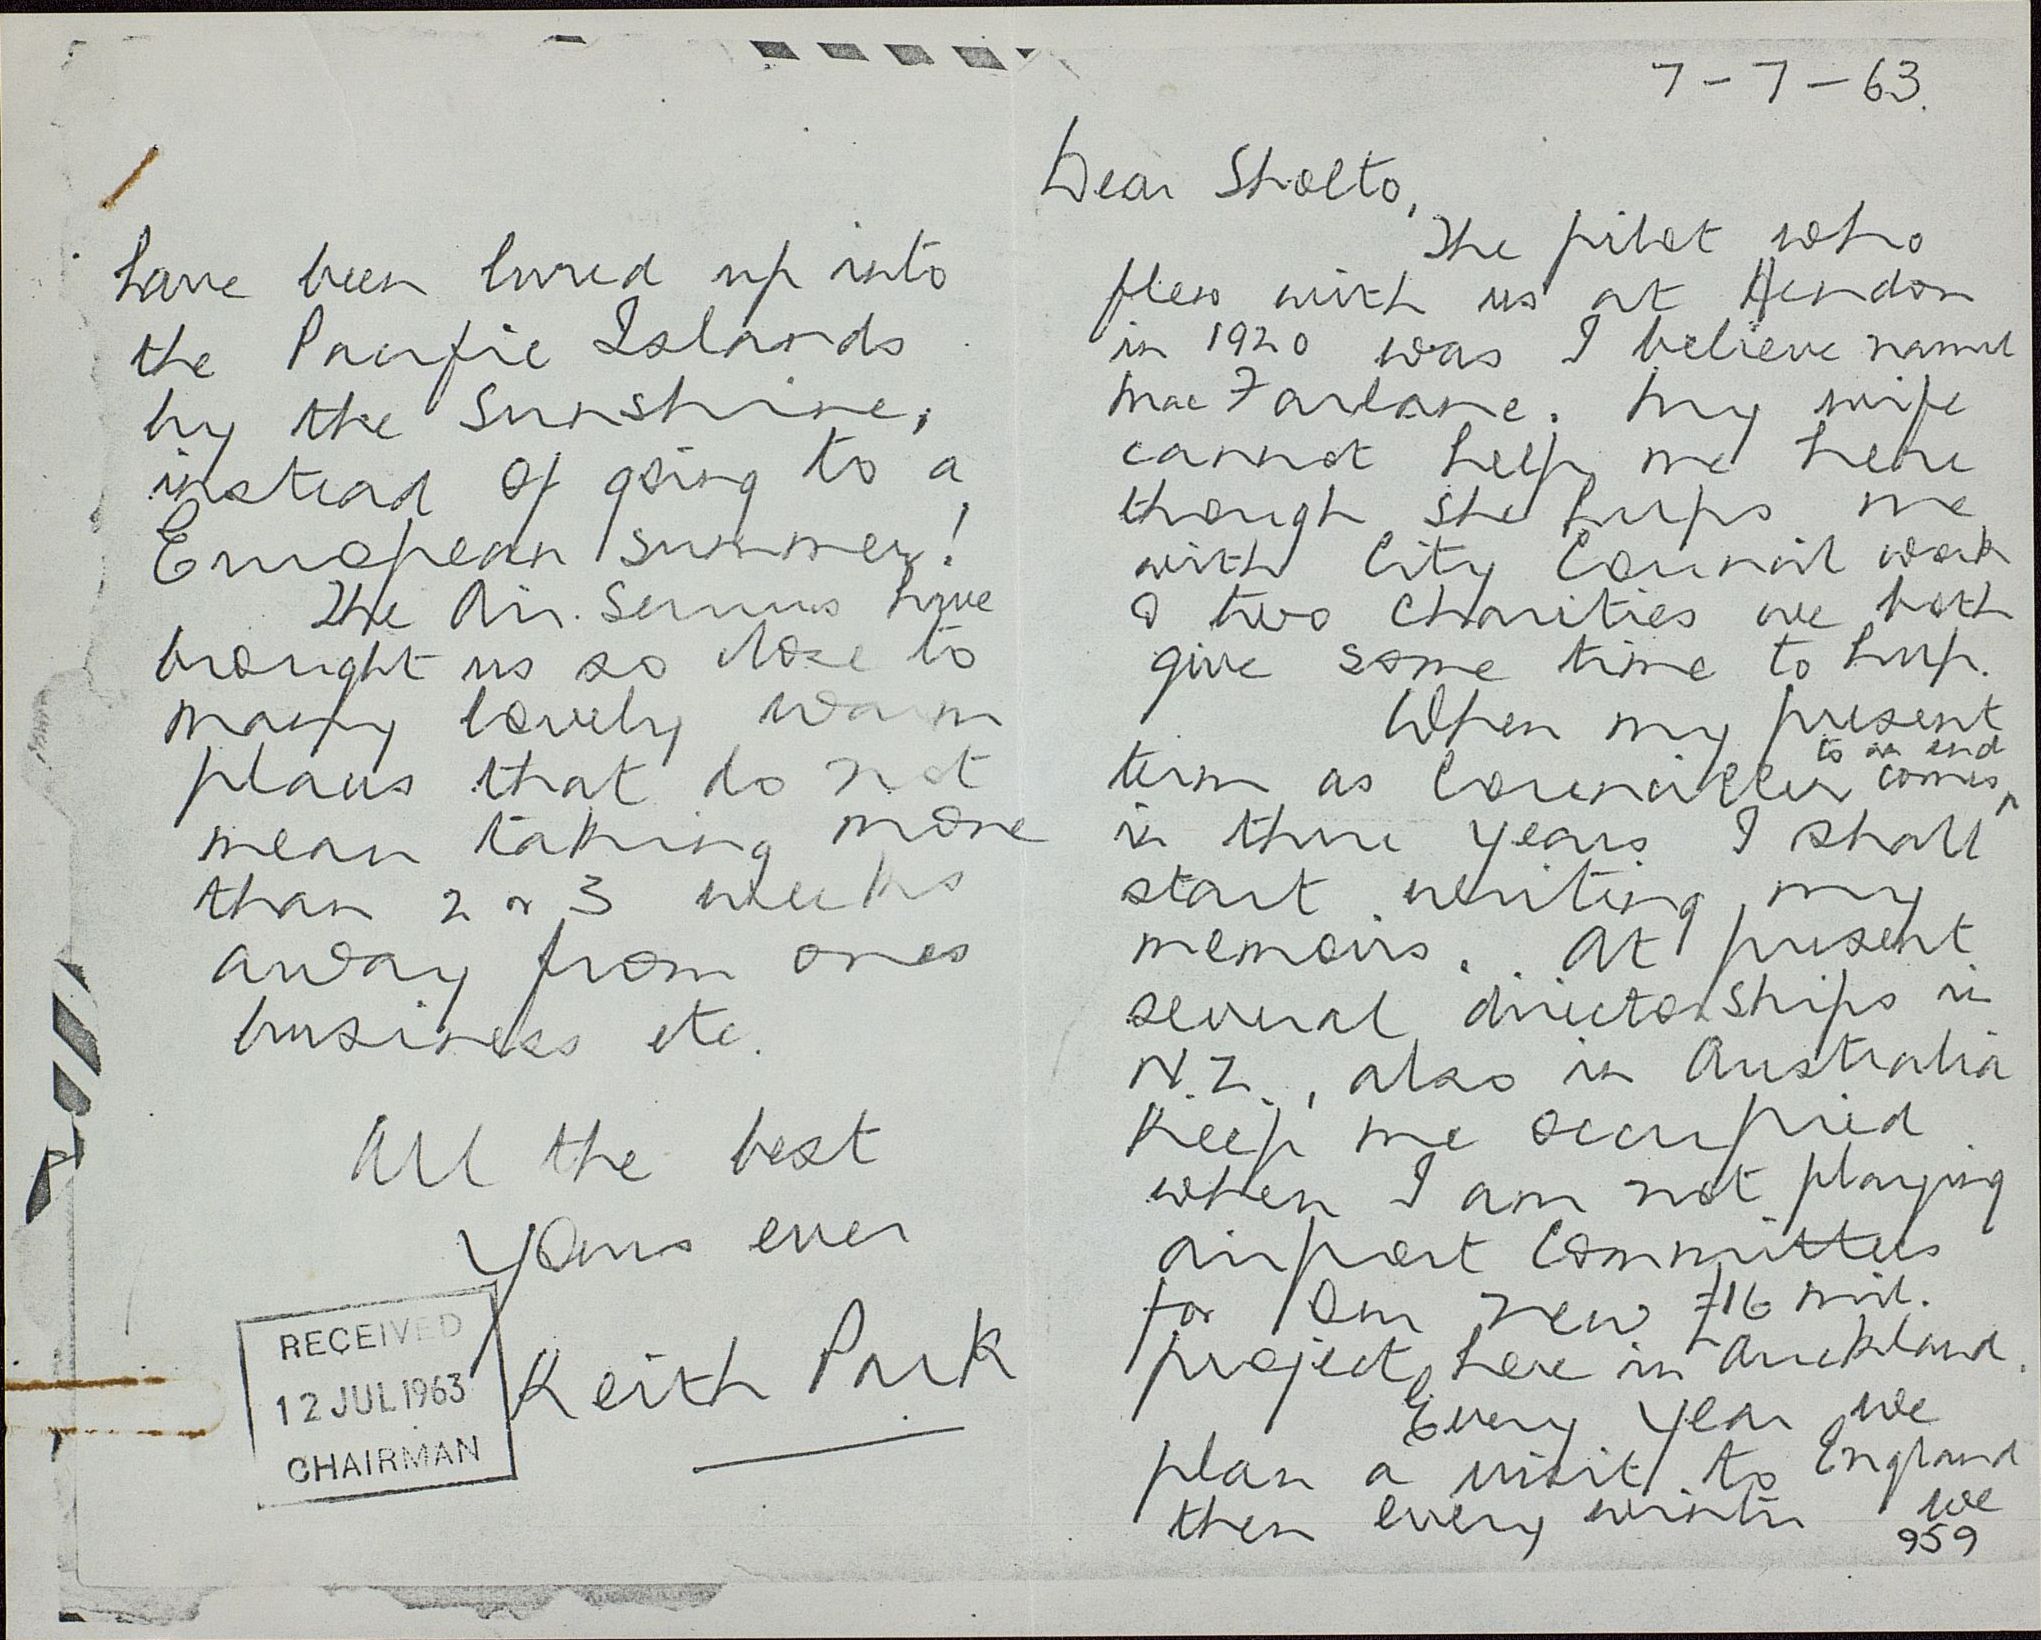 7-7-63.
Dear Sholto,
The pilot who
flew with us at Hendon
in 1920 was I believe named
MacFarlane. My wife
cannot help me here
though she helps me
with City Council work
& two charities we both
give some time to help.
When my present
to an end
term as Councillor comes ^
in three years I shall
start writing my
memoirs. At present
several directorships in
N.Z., also in Australia
keep me occupied
when I am not playing
airport Committees
for our new £16 mil.
project here in Auckland.
Every year we
plan a visit to England
then every winter we
959
have been lured up into
the Pacific Islands
by the sunshine,
instead of going to a
European summer!
The Air Services have
brought us so close to
many lovely warm
places that do not
mean taking more
than 2 or 3 weeks
away from ones
business etc.
All the best
Yours ever
Keith Park
RECEIVED
12 JUL 1963
CHAIRMAN